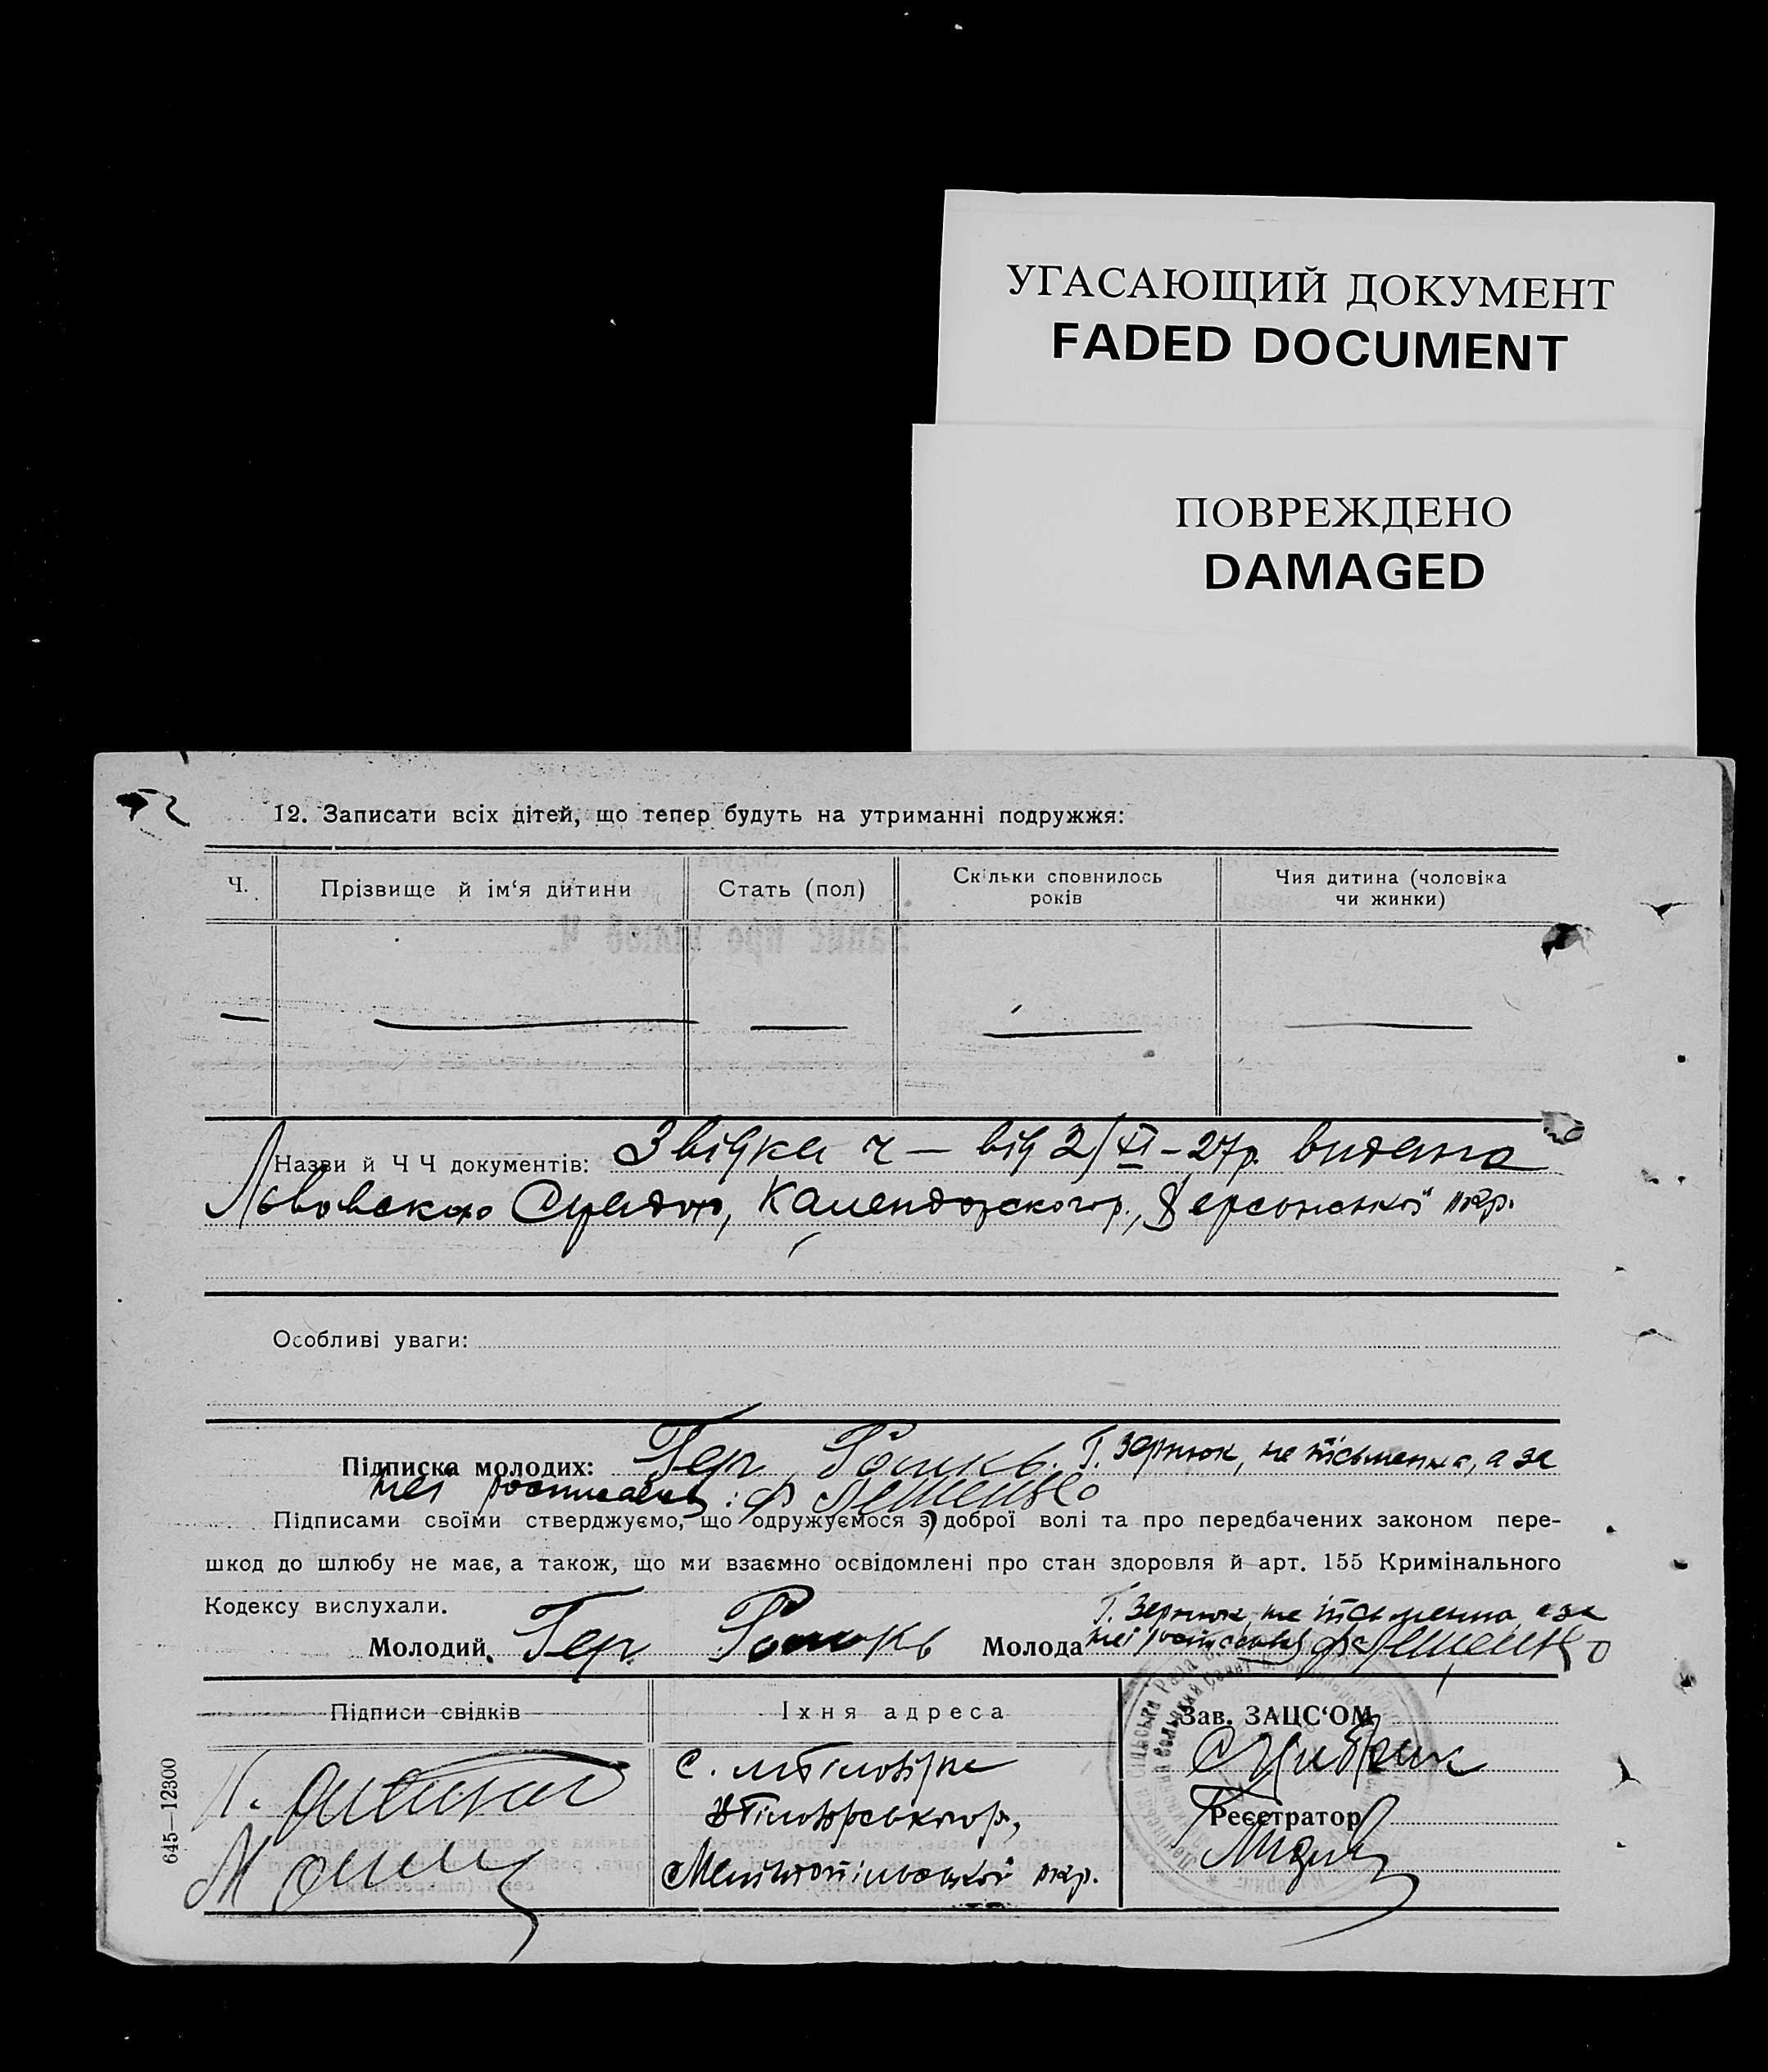 УГАСАЮЩИЙ ДОКУМЕНТ
FADED DOCUMENT
ПОВРЕЖДЕНО
DAMAGED
12. Записати всіх дітей, що тепер будуть на утриманні подружжя:
Ч.
Прізвище й ім‘я дитини
Стать (пол)
Скільки сповнилось
років
Чия дитина (чоловіка
чи жинки)
Назви й Ч Ч документів: Звідка ч — від 2/XI-27р. видана
Львовскою Сільрадою, Каменд Херсонської окр.
Особливі уваги:
Підписка молодих: Гер Г. Зернюк, не письменна, а за
неї росписався: Ф Лещенко
Підписами своїми стверджуємо, що одружуємося з доброї волі та про передбачених законом пере-
шкод до шлюбу не має, а також, що ми взаємно освідомлені про стан здоровля й арт. 155 Кримінального
Кодексу вислухали.
Г. Зернюк, не письменна, а за
Молодий Гер Молода неї росписався Ф Лещенко
Підписи свідків
Їхня адреса
Зав. ЗАЦС‘ОМ
с.
Реєстратор
Мелітопільської окр.
645—12300